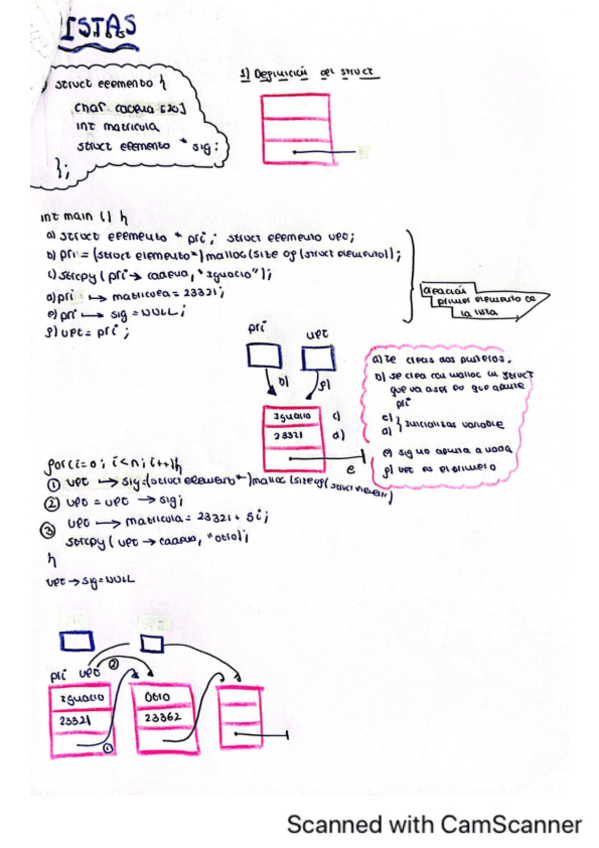 LISTAS
struct elemento {
char cadena [20]
int matricula
struct elemento * sig;
};
1) Definición del struct
int main () {
a) struct elemento * pri; struct elemento upt;
b) pri = (struct elemento*) malloc (size of (struct elemento));
c) strcpy (pri → cadena, "Ignacio");
d) pri → matricula = 23321;
e) pri → sig = NULL;
f) upt = pri;
creación
primer elemento de
la lista
pri upt
b) f)
Ignacio c)
23321 d)
e
a) te creas dos punteros.
b) se crea con malloc un struct
que va a ser lo que apunte
pri
c)
d) } Inicializas variable
e) sig no apunta a nada
f) upt es el primero
for (i=0; i<n; i++) {
① upt → sig = (struct elemento*) malloc (size of (struct elemento)
② upt = upt → sig;
③ upt → matricula = 23321 + 5i;
strcpy (upt → cadena, "otro);
}
upt → sig = NULL
pri upt ②
Ignacio Otro
23321 23362
①
Scanned with CamScanner